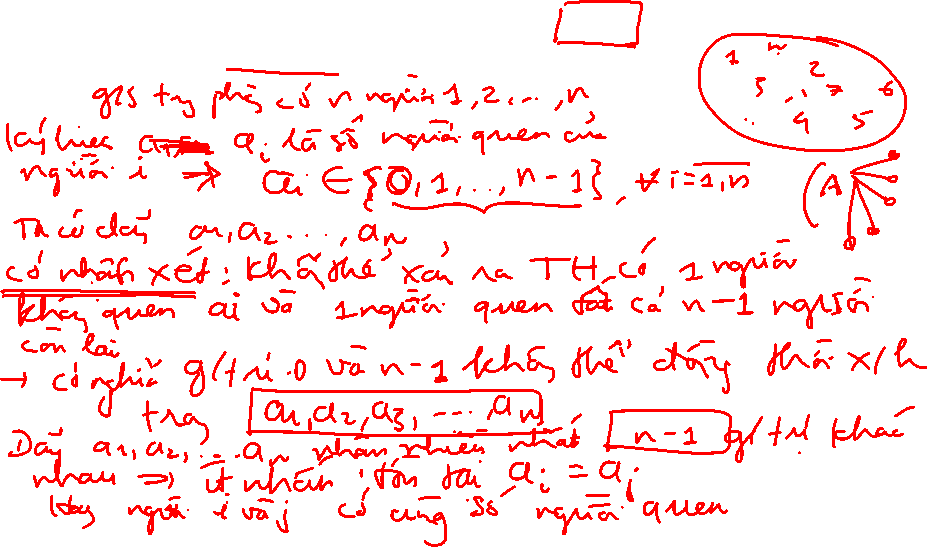 g/s trg phòng có n người 1, 2, ..., n
ký hiệu aᵢ là số người quen của
người i ⇒ aᵢ ∈ {0, 1, .., n-1}, ∀ i = 1, n
Ta có dãy a₁, a₂ ..., aₙ,
có nhận xét: không thể xảy ra TH có 1 người
không quen ai và 1 người quen tất cả n-1 người
còn lại
→ có nghĩa g/trị 0 và n-1 không thể đồng thời x/h
trong a₁, a₂, a₃, ..., aₙ
Dãy a₁, a₂, ... aₙ nhận nhiều nhất n-1 g/trị khác
nhau ⇒ ít nhất tồn tại aᵢ = aⱼ
Hay người i và j có cùng số người quen
1 n
3 2 6
4 5
A